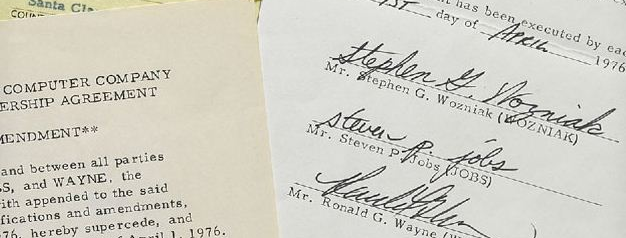 Santa Cla
COUN
COMPUTER COMPANY
ERSHIP AGREEMENT
MENDMENT**
and between all parties
BS, and WAYNE, the
ith appended to the said
fications and amendments,
76, hereby supercede, and
of April 1, 1976.
nt has been executed by eac
1ST day of APRIL 1976
Stephen G. Wozniak
Mr. Stephen G. Wozniak (WOZNIAK)
steven P. jobs
Mr. Steven P. Jobs (JOBS)
Mr. Ronald G. Wayne (W